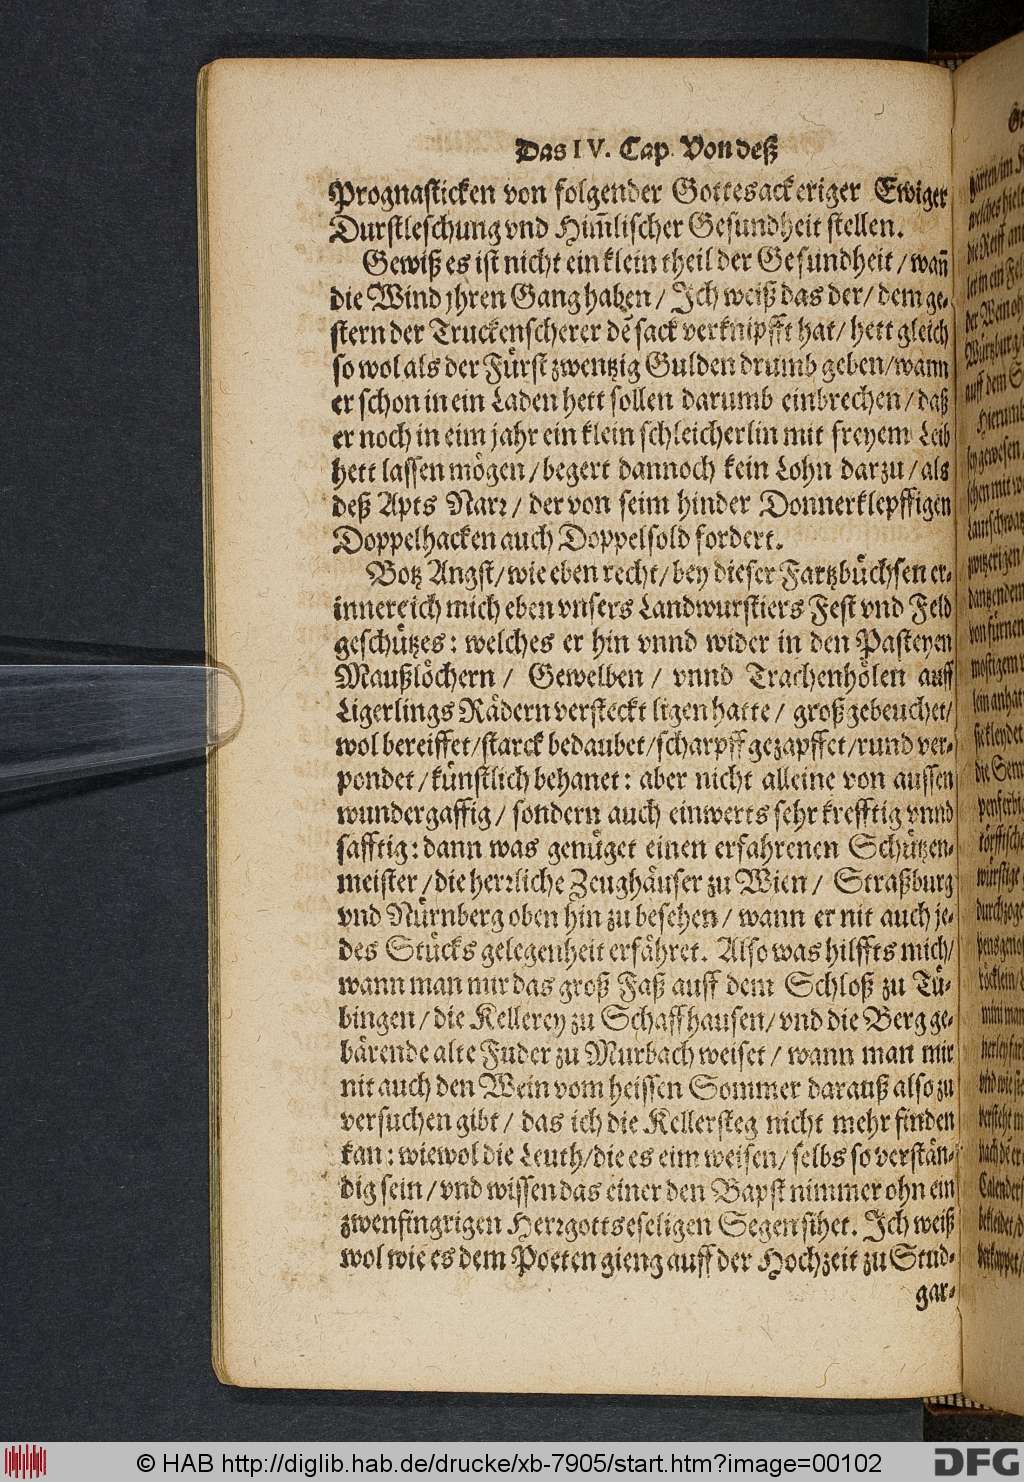 Das IV. Cap. Von deß
Prognasticken von folgender Gottesackeriger Ewiger
Durstleschung vnd Him̃lischer Gesundheit stellen.
Gewiß es ist nicht ein klein theil der Gesundheit / wañ
die Wind jhren Gang haben / Jch weiß das der / dem ge-
stern der Truckenscherer dẽ sack verknipfft hat / hett gleich
so wol als der Fürst zwentzig Gulden drumb geben / wann
er schon in ein Laden hett sollen darumb einbrechen / daß
er noch in eim jahr ein klein schleicherlin mit freyem Leib
hett lassen mögen / begert dannoch kein Lohn darzu / als
deß Apts Narr / der von seim hinder Donnerklepffigen
Doppelhacken auch Doppelsold fordert.
Botz Angst / wie eben recht / bey dieser Fartzbüchsen er-
innere ich mich eben vnsers Landwurstiers Fest vnd Feld
geschützes: welches er hin vnnd wider in den Pasteyen
Maußlöchern / Gewelben / vnnd Trachenhölen auff
Ligerlings Rädern versteckt ligen hatte / groß gebeuchet /
wol bereiffet / starck bedaubet / scharpff gezapffet / rund ver-
pondet / künstlich behanet: aber nicht alleine von aussen
wundergaffig / sondern auch einwerts sehr krefftig vnnd
safftig: dann was genüget einen erfahrenen Schützen-
meister / die herrliche Zeughäuser zu Wien / Straßburg
vnd Nürnberg oben hin zu besehen / wann er nit auch je-
des Stücks gelegenheit erfähret. Also was hilffts mich /
wann man nur das groß Faß auff dem Schloß zu Tü-
bingen / die Kellerey zu Schaffhausen / vnd die Berg ge-
bärende alte Fuder zu Murbach weiset / wann man mir
nit auch den Wein vom heissen Sommer darauß also zu
versuchen gibt / das ich die Kellersteg nicht mehr finden
kan: wiewol die Leuth / die es eim weisen / selbs so verstän-
dig sein / vnd wissen das einer den Bapst nimmer ohn ein
zwenfingrigen Herrgottseseligen Segen sihet. Jch weiß
wol wie es dem Poeten gieng auff der Hochzeit zu Stud-
gar-
© HAB http://diglib.hab.de/drucke/xb-7905/start.htm?image=00102
DFG